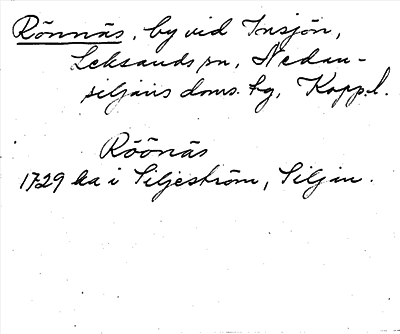 Rönnäs, by vid Insjön,
Leksands sn, Nedan-
siljans doms. tg, Kopp.l.
Röönäs
1729 ka i Siljeström, Siljan.